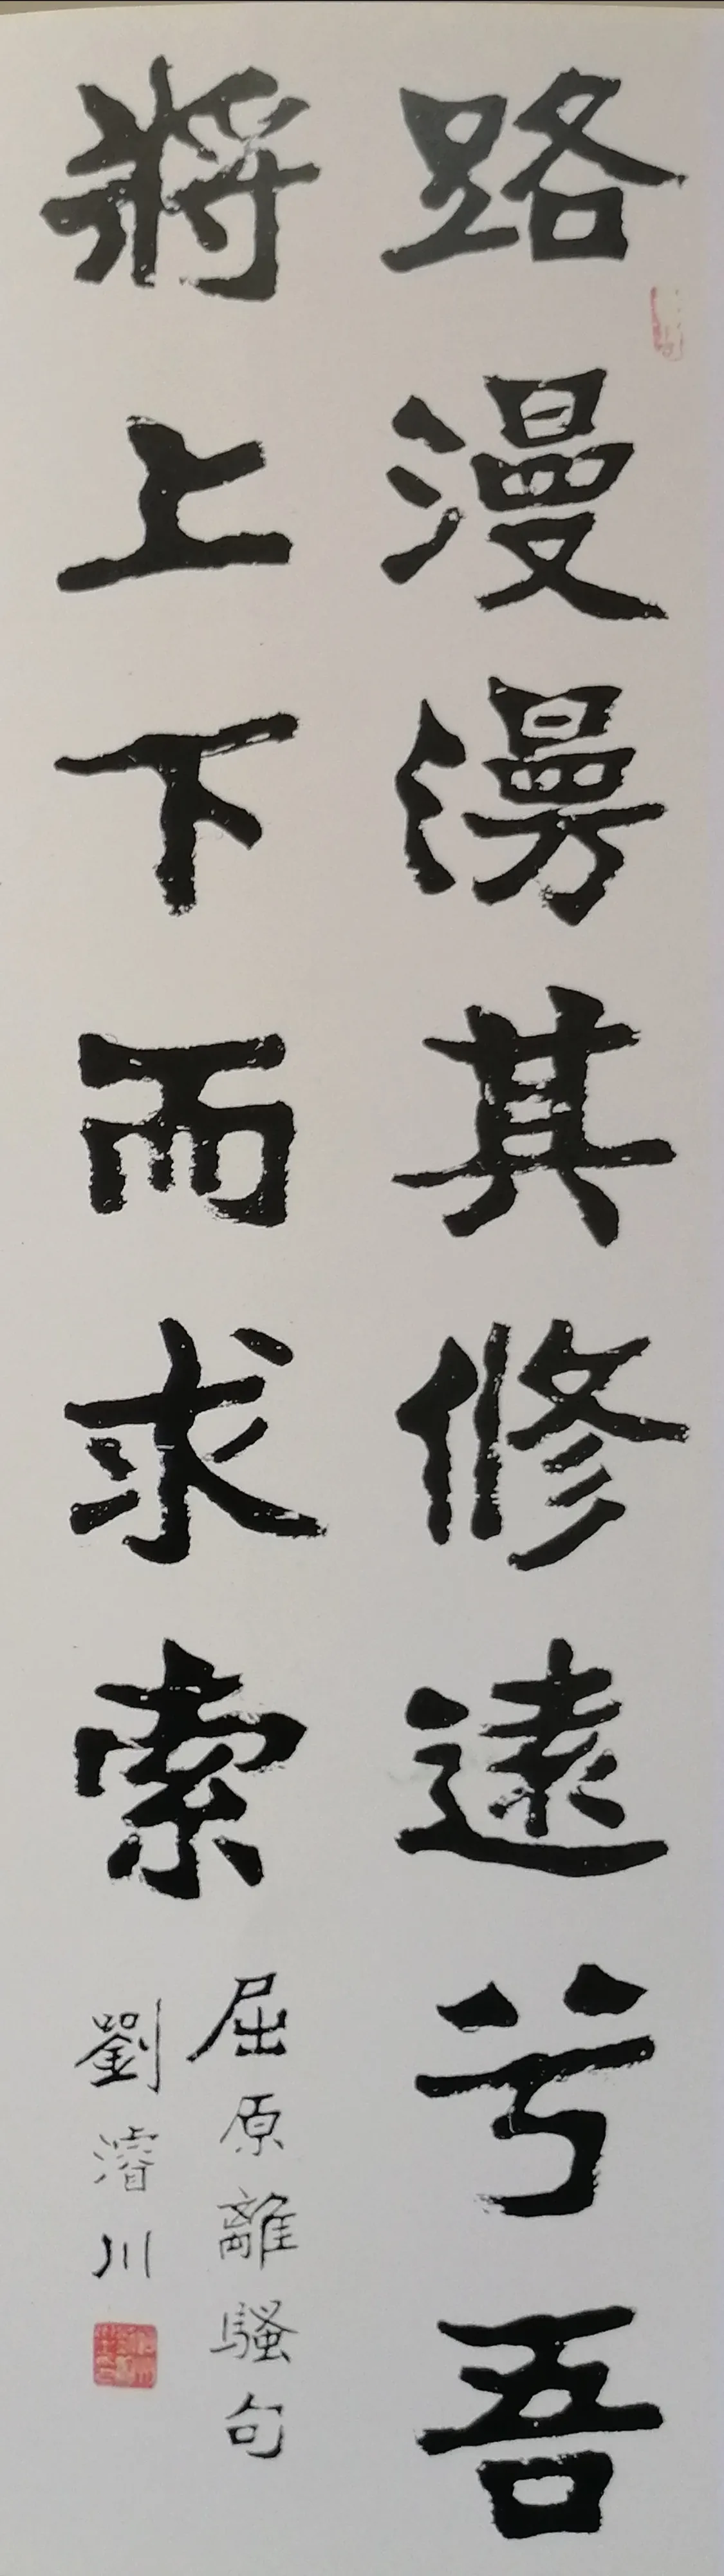 路漫漫其修遠兮吾
將上下而求索
屈原離騷句
劉濬川